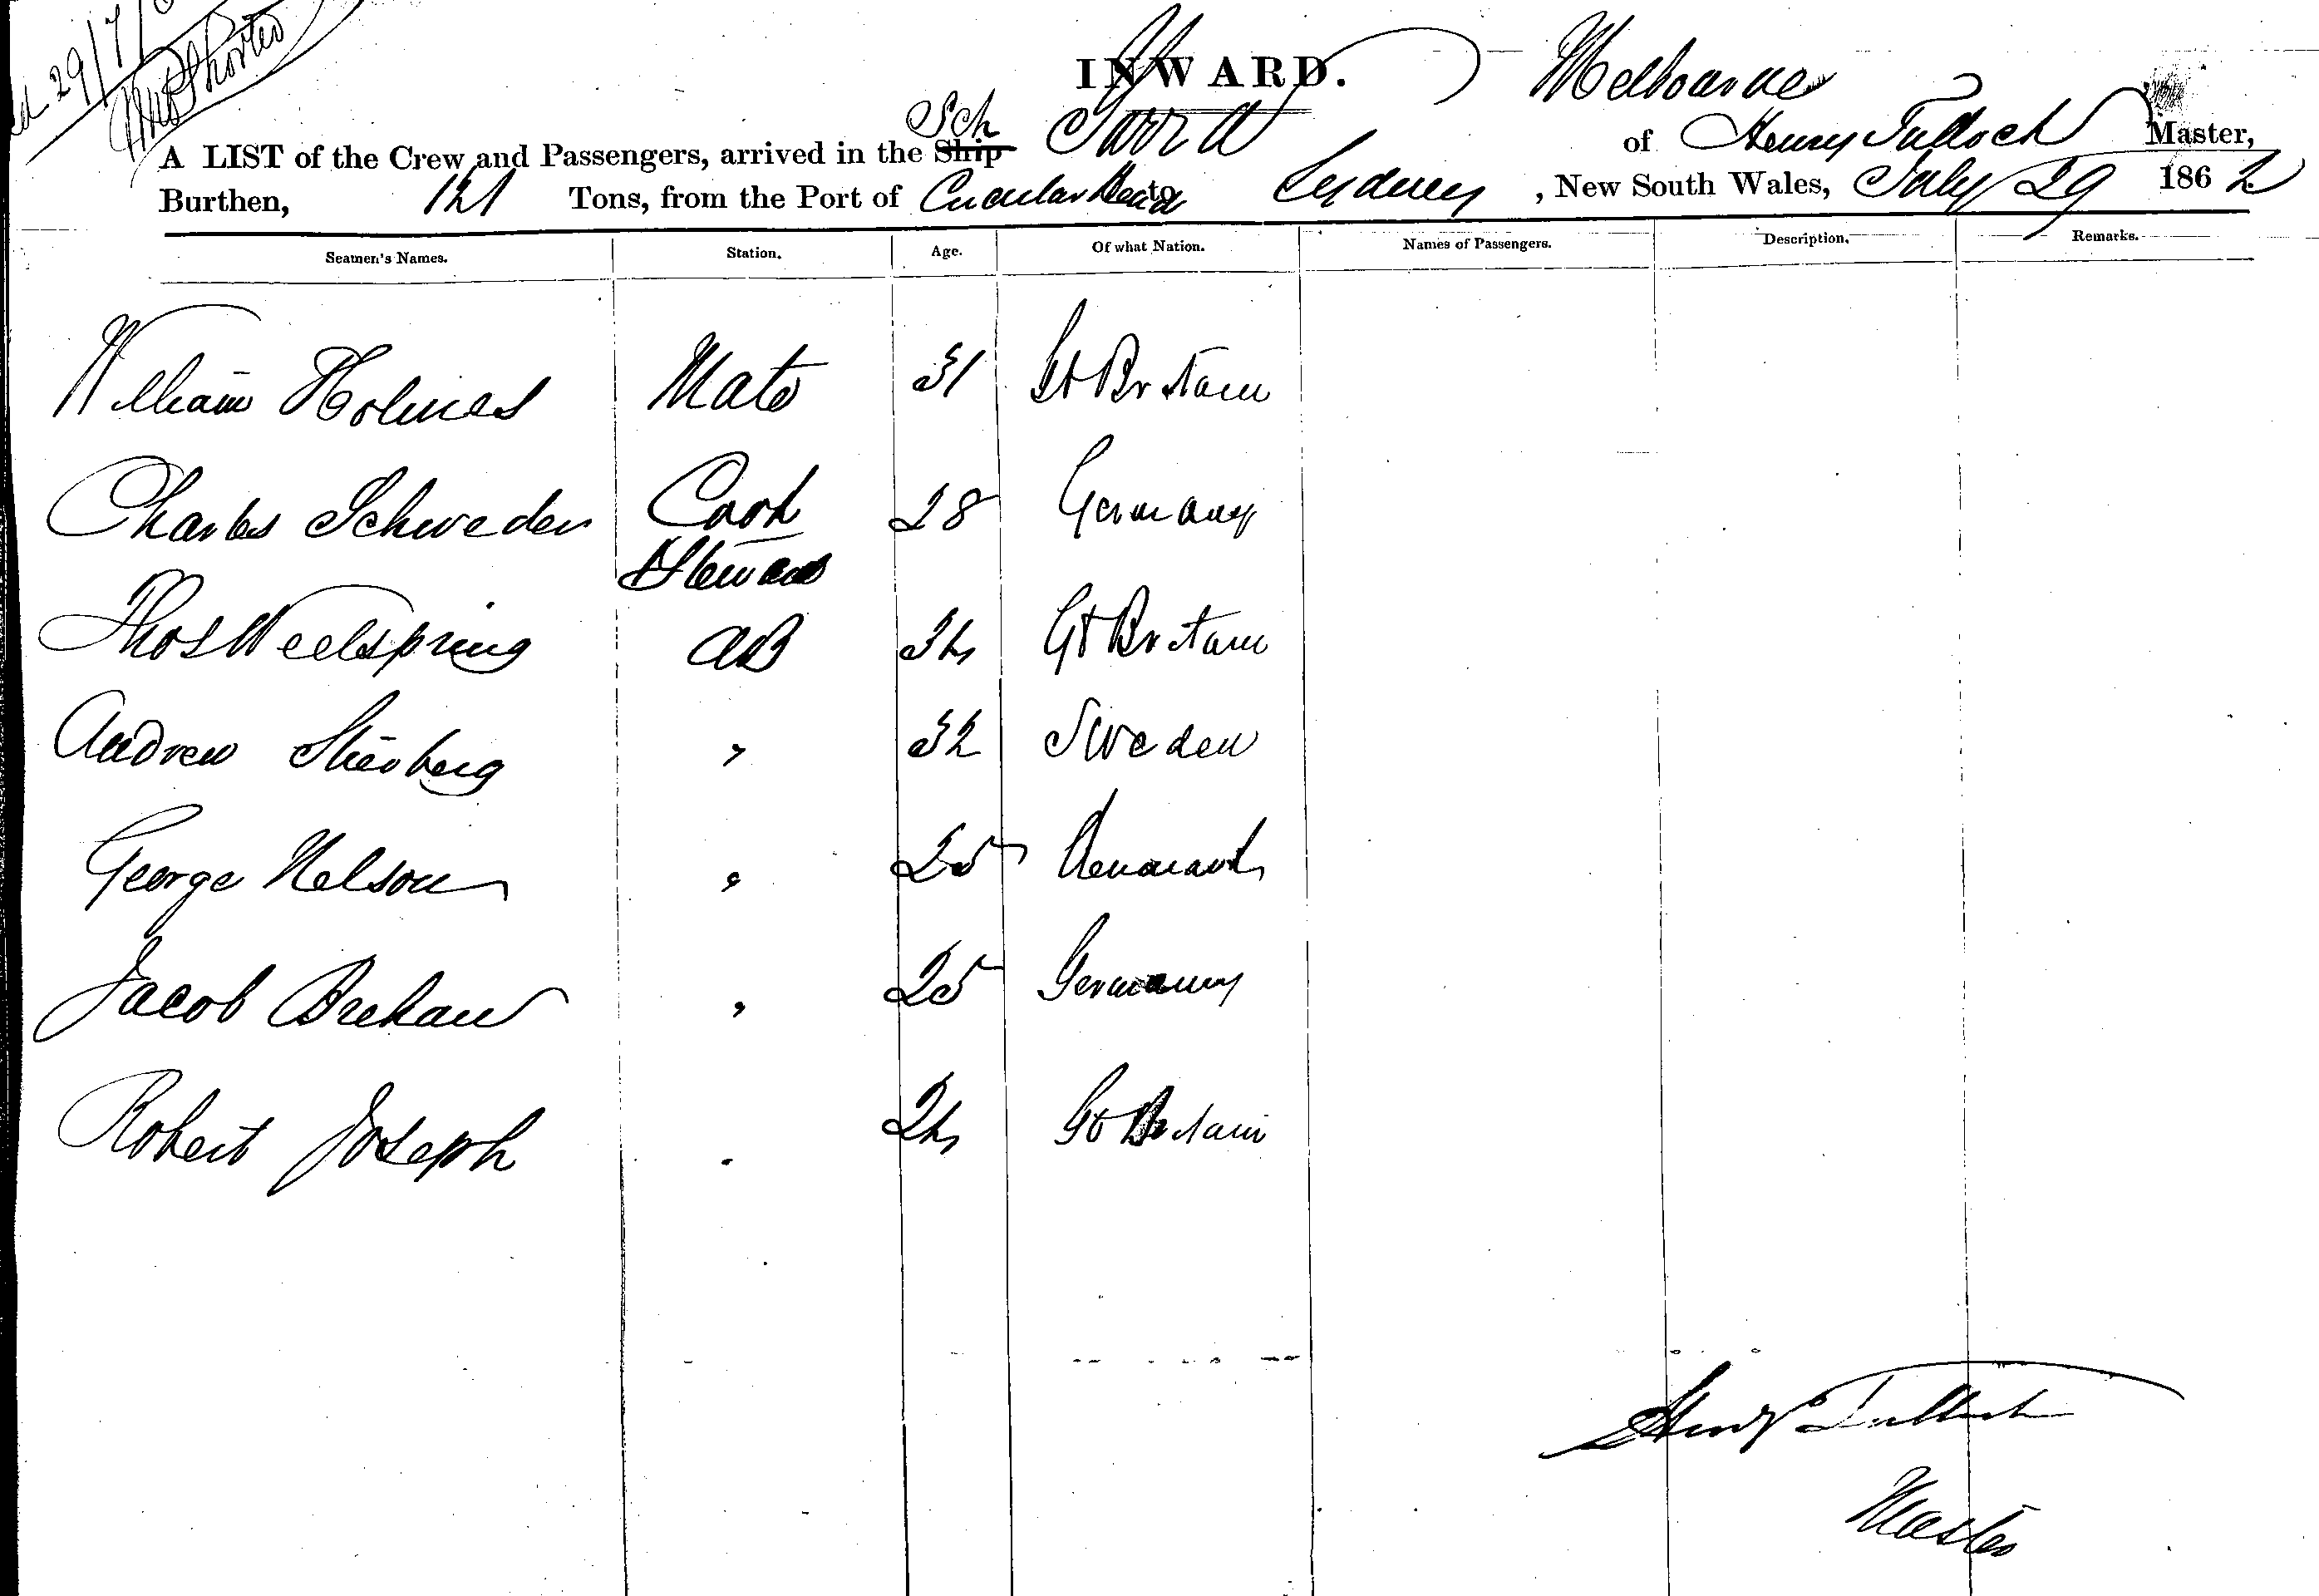 29/7/
INWARD.
Melbourne
A LIST of the Crew and Passengers, arrived in the Ship Sch Yarra of Henry Tulloch Master,
Burthen, 121 Tons, from the Port of Circular Head to Sydney, New South Wales, July 29 1862
Seamen's Names. Station. Age. Of what Nation. Names of Passengers. Description. Remarks.
William Holmes Mate 31 Gt Britain
Charles Schweden Cook 28 Germany
& Steward
Thos Weelspring AB 34 Gt Britain
Andrew " 32 Sweden
George Nelson " 25 Denmark
Jacob " 25 Germany
Robert Joseph " 24 Gt Britain
Henry Tulloch
Master